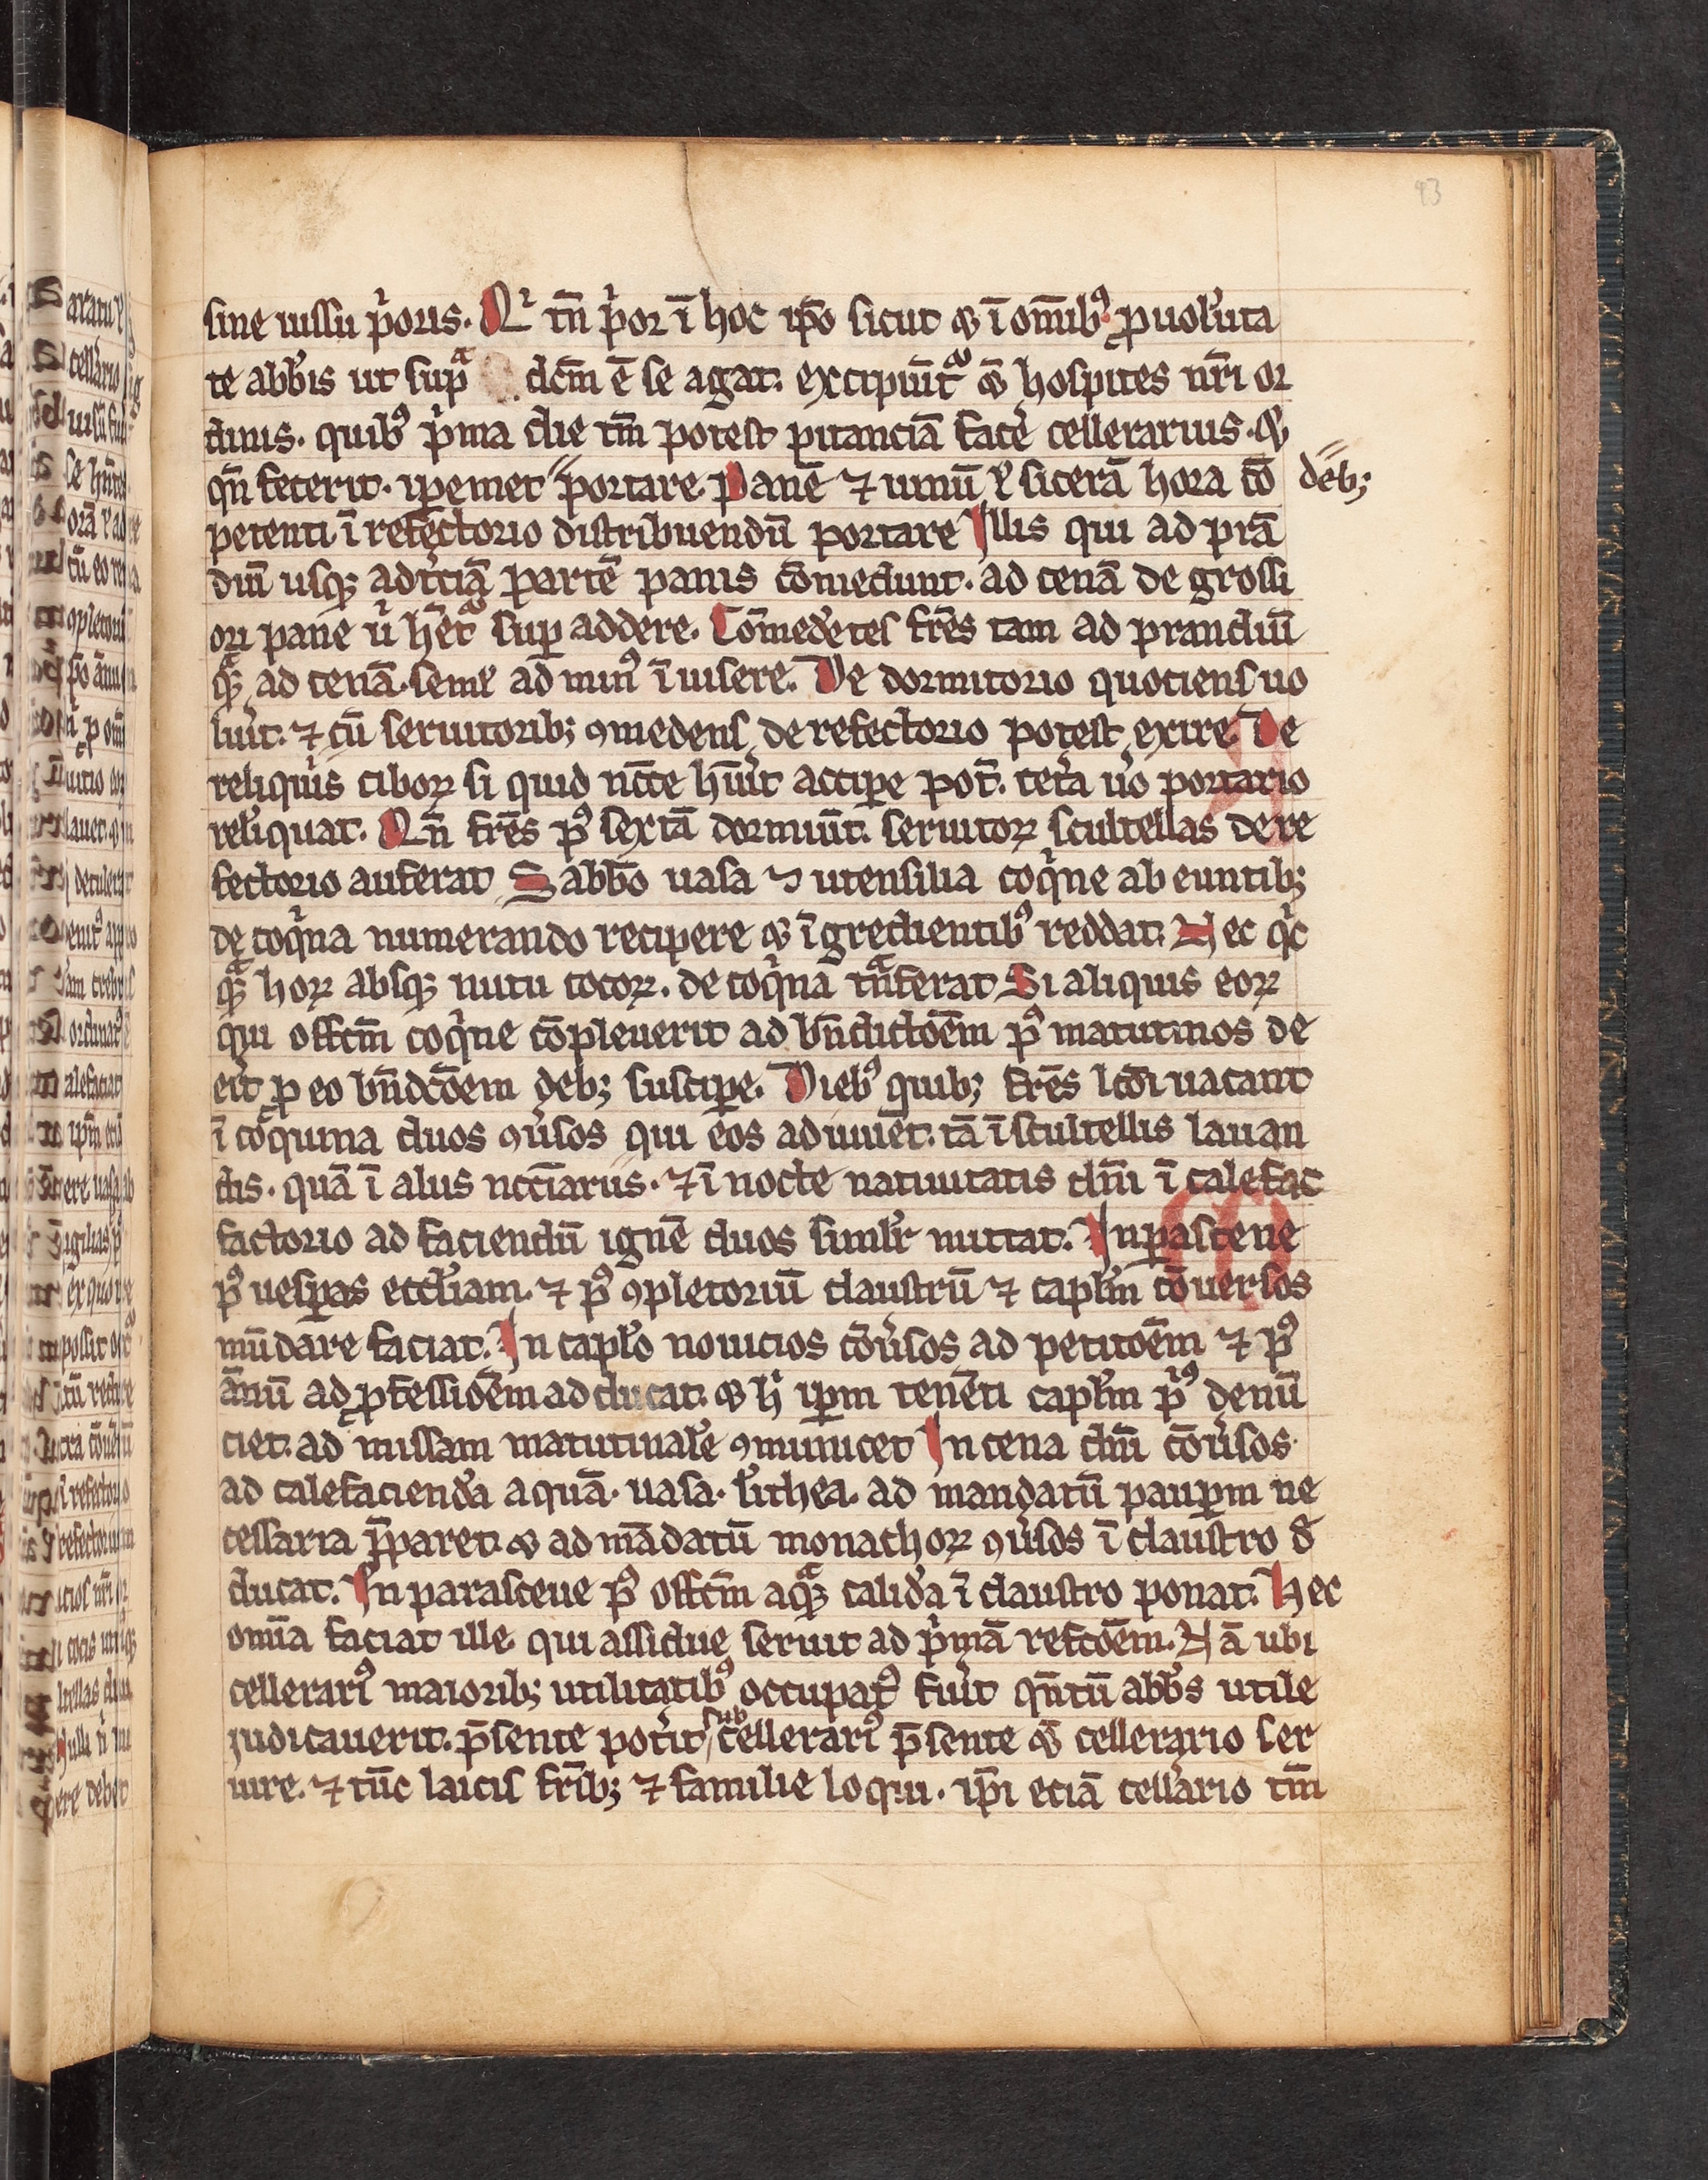 43
sine iussu p̍oris. Qr̍ tn̄ p̍or ī hoc ip̄o sicut ⁊ ī om̄ibꝰ ꝓ uol̄uta
te abb̄is ut sup̄ᵃ dc̄m ē se agat. excipiūt᷑ hospites nr̄i or
dinis. quibꝰ p̍ma die tm̄ potest pitanciā facē cellerarius. ⁊
qn̄ fecerit. ip̄emet portare. Panē ⁊ uinū ł sicerā hora cō deb;
petenti ī refectorio distribuendū portare Illis qui ad prā
diū usqꝫ ad t̍ciā partē panis cōmedunt. ad cenā de grossi
ori pane ū hēt sup addere. Cōmedētes fr̄es tam ad prandiū
qᵃ̄ꝫ ad cenā. semel ad minꝰ īuisere. De dormitorio quociens uo
lūit. ⁊ cū seruitorib; ꝯmedens de refectorio potest exire. De
reliquiis ciboꝝ si quid nc̄ce hūit accipe pot̄. cet̄a ūo portario
rel̄iquat. Qn̄ fr̄es pꝰ sextā dormiūt. seruitoꝝ scultellas de re
fectorio auferat Sabbō uasa ⁊ utensilia coq̍ne ab euntib;
de coq̍na numerando recipere ⁊ īgredientibꝰ reddat. Nec q̍c
qᵃ̄ꝫ hoꝝ absqꝫ nutu cocoꝝ. de coq̍nā tn̄ᵃferat Si aliquis eoꝝ
qui offcm̄ coq̍ne cōpleuerit ad bn̄dictōem pꝰ matutinos de
eīt ꝓ eo bn̄dcōem deb; suscipe. Diebꝰ quib; fr̄es lcōi uacant
ī coquina duos ꝯūsos qui eos adiuuēt. tā ī scultellis lauan
dis. quā ī aliis nccīariis. ⁊ ī nocte natiuitatis dn̄i ī calefac
factorio ad faciendū ignē duos simil̄r mittat. In parasceue
pꝰ uesp̄as eccl̄iam. ⁊ pꝰ ꝯpletoriū claustrū ⁊ capl̄m cōuersos
mūdare faciat. In capl̄o nouicios cōūsos ad petitōem ⁊ pꝰ
ānū ad ꝓfessiōem adducat. ⁊ h̍ ip̄m tenēti capl̄m p̍ꝰ denū
ciet. ad missam matutinal̄e ꝯmunicet In cena dn̄i cōūsos
ad calefacienda aquā. uasa. līthea. ad mandatū paup̄m ne
cessaria p̄paret. ⁊ ad mādatū monachoꝝ ꝯūsos ī claustro d̄
ducat. In parasceue pꝰ offcm̄ aqᵃ̄ꝫ calidā ī claustro ponat. Hec
om̄ia faciat ille qui assidue seruit ad p̍mā refcōem. Nā ubi
cellerariꝰ maiorib; utilitatibꝰ occupatꝰ fūit qn̄tū abb̄s utile
judicauerit. p̄sente pot̄it subcellerariꝰ p̄sente cellerario ser
uire. ⁊ tūc laicis fr̄ib; ⁊ familie loqui. ip̄i eciā cell̄ario tm̄